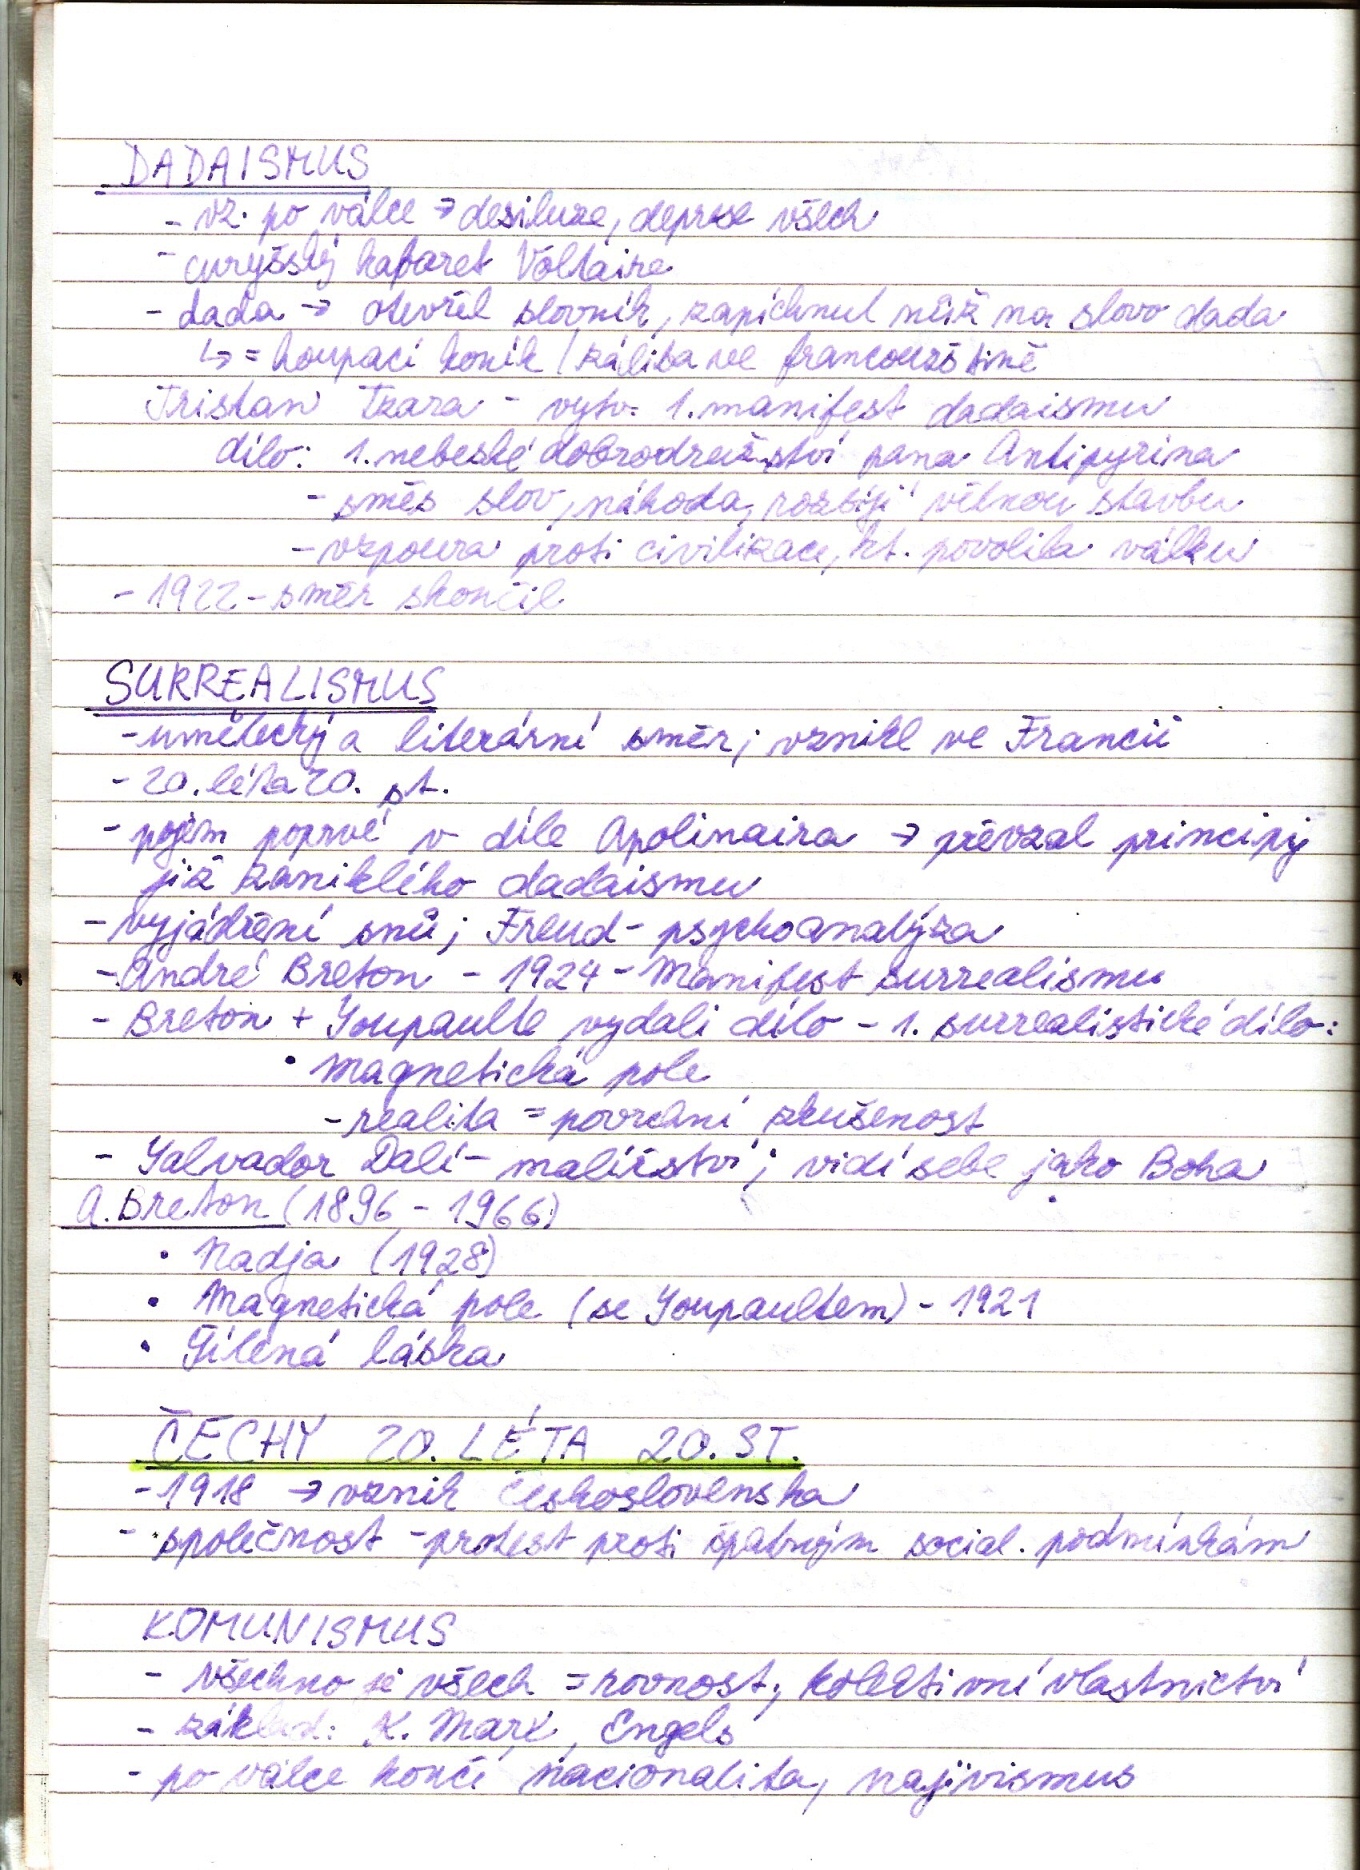 DADAISMUS
- vz. po válce → desiluze, deprese všech
- curyšský kabaret Voltaire
- dada → otevřel slovník, zapíchnul nůž na slovo dada
↳ = houpací koník / záliba ve francouzštině
Tristan Tzara - vytv. 1. manifest dadaismu
dílo: 1. nebeské dobrodružství pana Antipyrina
- směs slov, náhoda, rozbíjí větnou stavbu
- vzpoura proti civilizaci, kt. povolila válku
- 1922 - směr skončil
SURREALISMUS
- umělecký a literární směr; vznikl ve Francii
- 20. léta 20. st.
- pojem poprvé v díle Apolinaira → převzal principy
již zaniklého dadaismu
- vyjádření snů; Freud - psychoanalýza
- André Breton - 1924 - Manifest surrealismu
- Breton + Soupaulte vydali dílo - 1. surrealistické dílo:
• Magnetická pole
- realita = povrchní zkušenost
- Salvador Dalí - malířství; vidí sebe jako Boha
A. Breton (1896 - 1966)
• Nadja (1928)
• Magnetická pole (se Soupaultem) - 1921
• Šílená láska
ČECHY 20. LÉTA 20. ST.
- 1918 → vznik Československa
- společnost - protest proti špatným social. podmínkám
KOMUNISMUS
- všechno je všech = rovnost, kolektivní vlastnictví
- základ: K. Marx, Engels
- po válce končí nacionalita, najivismus